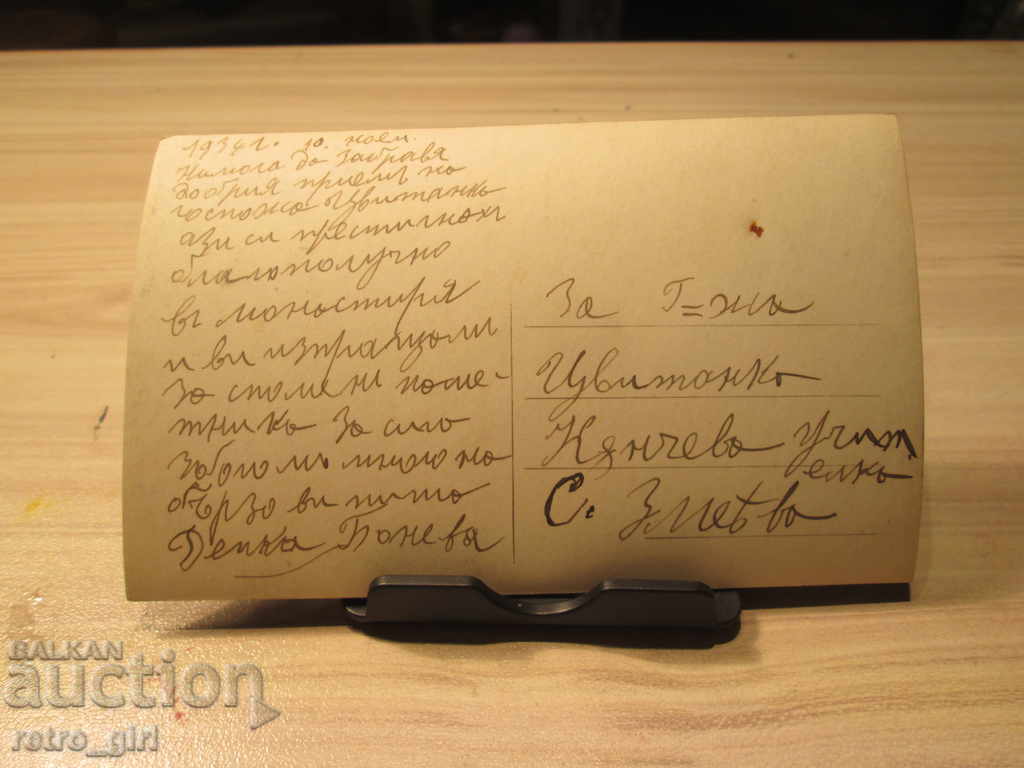 1934 г. 10. ноем.
Немога да забравя
добрия приемъ на
госпожа Цвитанка
ази си пристигнахъ
благополучно
въ монастиря
и ви изпращам
за спомени
за сига
много на
бързо ви пиша
Денка Банева
За Г=жа
Цвитанка
Кянчева учит
елка
С. Змѣва
BALKAN
auction
retro_girl